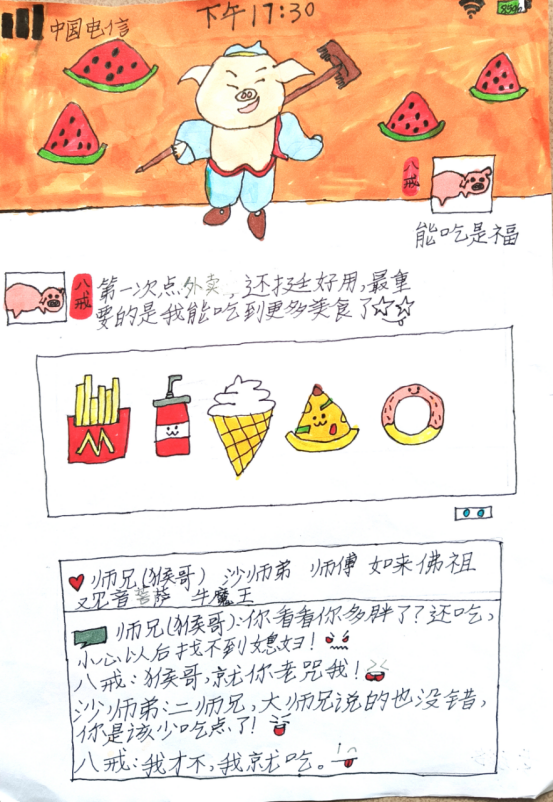 中国电信
下午17:30
85%
八戒
能吃是福
八戒
第一次点外卖,还挺好用,最重
要的是我能吃到更多美食了
师兄(猴哥) 沙师弟 师傅 如来佛祖
观音菩萨 牛魔王
师兄(猴哥):你看看你多胖了?还吃,
小心以后找不到媳妇!
八戒:猴哥,就你老咒我!
沙师弟:二师兄,大师兄说的也没错,
你是该少吃点了!
八戒:我才不,我就吃。